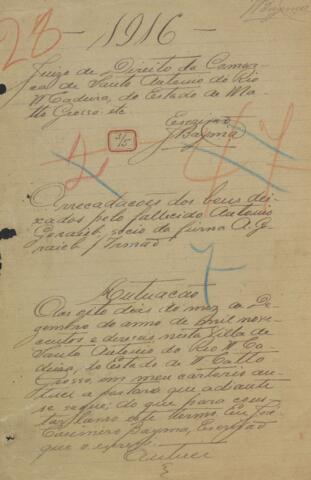 JBayma
28
- 1916 -
Juizo de Direito da Comar-
ca de Santo Antonio do Rio
Madeira, do Estado de Mat-
to Grosso. etc
Escrivão
JBayma
3/5
47
Arrecadacões dos bens dei-
xados pelo fallecido Antonio
Geraieb, socio da firma A. G-
raieb / Irmão
7
Autuacao
Aos oito dias do mez de De-
zembro do anno de mil nove-
centos e dezeseis, nesta Villa de
Santo Antonio do Rio Ma-
deira, do Estado de Matto
Grosso, em meu cartorio au-
tuei a portaria que adiante
se segue; do que para cons-
tar lavro este termo. Eu, José
Casimiro Bayma, Escrivão
que o escrevi.
Autuei